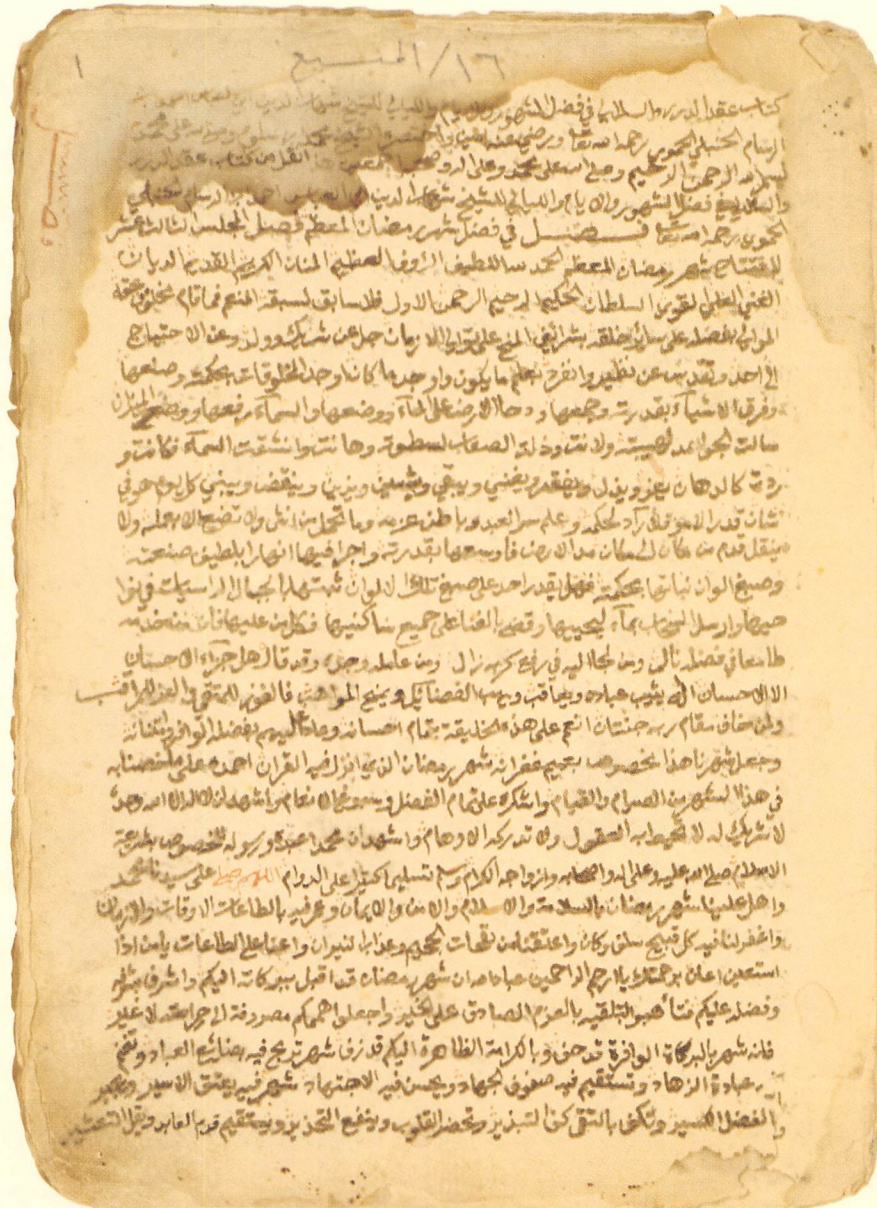 ١٦/المنسبع
١
كتاب عقد الدرر واللآلي في فضل الشهور والايام والليالي للشيخ شهاب الدين ابي العباس احمد بن
الرسام الحنبلي الحموي رحمه الله تعا ورضي عنه
بسم الله الرحمن الرحيم وصلى الله على محمد وعلى اله وصحبه اجمعين هذا انقل من كتاب عقد الدرر
واللآلي في فضل الشهور والايام والليالي للشيخ شهاب الدين ابي العباس احمد ابن الرسام الحنبلي
الحموي رحمه الله تعا فصل في فضل شهر رمضان المعظم فصل المجلس الثالث عشر
شهر رمضان المعظم الحمد لله اللطيف الرؤف العظيم المنان الكريم القديم الديان
الغني العلي القوي السلطان الحكيم الرحيم الرحمن الاول فلا سابق لسبقه المنعم فما قام مخلوق بحقه
الموالي بفضله على سائر خلقه بشرائف المنح على توالي الازمان جل عن شريك وولد وعن الاحتياج
الى احد وتقدس عن نظير وانفرد بعلم ما يكون واوجد ما كان اوجد المخلوقات بحكمته وصنعها
وفرق الاشيآء بقدرته وجمعها ودحا الارض على المآء ووضعها والسمآء رفعها ووضع الميزان
سالت الجوامد لهيبته ولانت وذلت الصعاب لسطوته وهانت وانشقت السمآء فكانت و
ردة كالدهان يعز ويذل ويفقر ويغني ويبقي ويشين ويزين وينقض ويبني كل يوم هو في
شان قدر الامور فلا رآد لحكمه وعلم سر العبد وباطن عزمه وما تحمل من انثى ولا تضع الا بعلمه ولا
ينقل قدم من مكان الى مكان مد الارض فاوسعها بقدرته واجرا فيها انهارا بلطيف صنعته
وصبغ الوان نباتها بحكمته فهل يقدر احد على صبغ تلك الالوان ثبتها بالجبال الراسيات في نواحيها
وارسل السحاب بمآء ليحييها وقضى بالفنا على جميع ساكنيها فكل من عليها فان من خدمه
طامعا في فضله نال ومن لجا اليه في رفع كربه زال ومن عامله وجده وقد قال هل جزآء الاحسان
الا الاحسان اله يثيب عباده ويعاقب ويهب الفضائل ويمنح المواهب فالفوز للمتقي والعز للمراقب
ولمن خاف مقام ربه جنتان انعم على هذه الخليقة بتمام احسانه وعاد عليهم بفضله الوافر وامتنانه
وجعل شهرنا هذا مخصوصا بعميم غفرانه شهر رمضان الذي انزل فيه القران احمده على ما خصنا به
في هذا الشهر من الصيام والقيام واشكره على تمام الفضل وسبوغ الانعام واشهد ان لا اله الا الله وحده
لا شريك له لا تحيط به العقول ولا تدركه الاوهام واشهد ان محمدا عبده ورسوله المخصوص بشريعة
الاسلام صلى الله عليه وعلى اله واصحابه وازواجه الكرام وسلم تسليما كثيرا على الدوام اللهم صل على سيدنا محمد
واهل علينا شهر رمضان بالسلامة والاسلام والامن والايمان وعمر فيه بالطاعات الاوقات والازمان
واغفر لنا فيه كل قبيح سلف وكان واعتقنا من لفحات الجحيم وعذاب النيران واعنا على الطاعات يا من اذا
استعين اعان برحمتك يا ارحم الراحمين عباد الله ان شهر رمضان قد اقبل ببركاته اليكم واشرف
وفضله عليكم فتأهبوا لتلقيه بالعزم الصادق على الخير واجعلوا هممكم مصروفة الى لا غير
فانه شهر بالبركة الوافرة قد حف وبالكرامة الظاهرة اليكم قد زف شهر تربح فيه بضائع العباد وتفخم
عبادة الزهاد وتستقيم فيه صفوف الجهاد ويحسن فيه الاجتهاد شهر فيه يعتق الاسير ويجبر
بالفضل الكسير وتكف بالتقى كف التبذير وتحضر القلوب وينفع التحذير ويستقيم قدم العابد ويقل التعثير